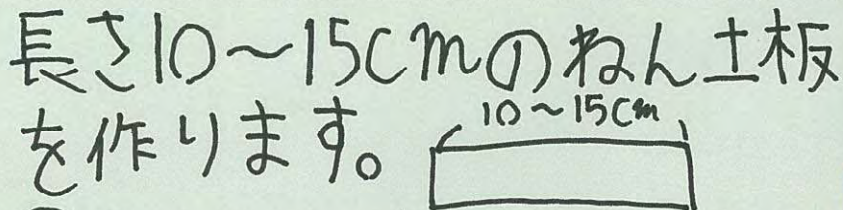 長さ10〜15cmのねん土板
を作ります。
10〜15cm